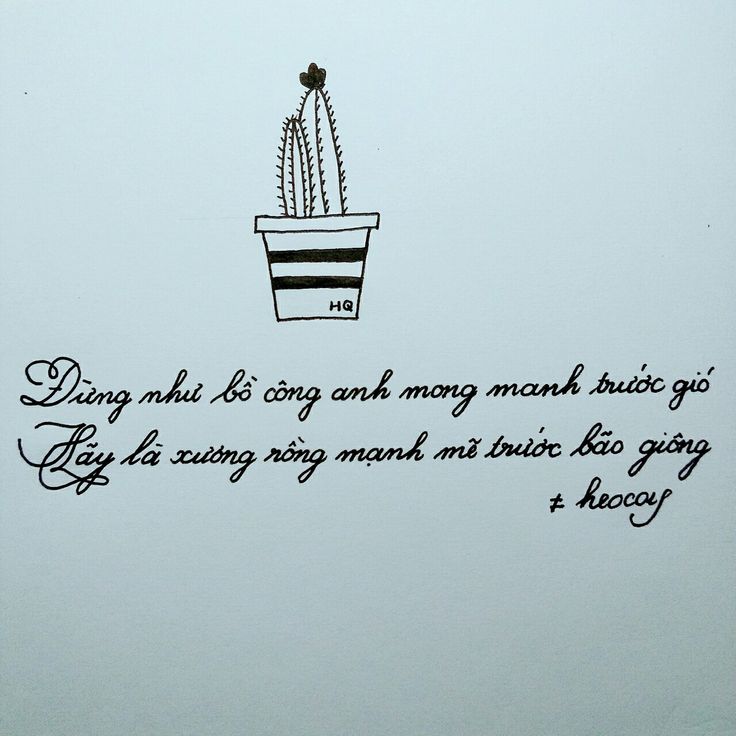 HQ
Đừng như bồ công anh mong manh trước gió
Hãy là xương rồng mạnh mẽ trước bão giông
# heocoy